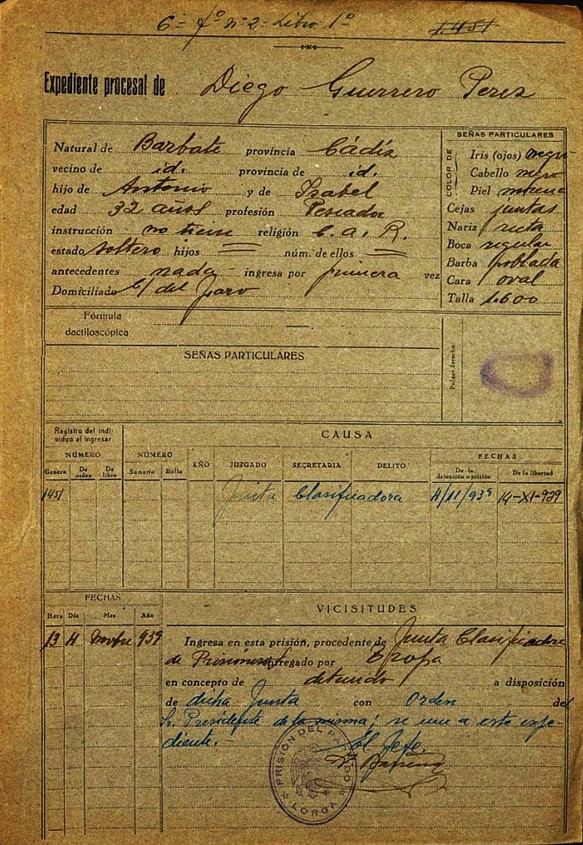 6ª fº nº 2 Libro 1º 1.451
Expediente procesal de Diego Guerrero Perez
Natural de Barbate provincia Cádiz
vecino de id. provincia de id.
hijo de Antonio y de Isabel
edad 32 años profesión Pescador
instrucción no tiene religión C. A. R.
estado soltero hijos = núm. de ellos =
antecedentes nada ingresa por primera vez
Domiciliado C/ del
SEÑAS PARTICULARES
COLOR DE
Iris (ojos) negro
Cabello negro
Piel morena
Cejas juntas
Nariz recta
Boca regular
Barba poblada
Cara oval
Talla 1.600
Fórmula dactiloscópica —
SEÑAS PARTICULARES
Pulgar derecho
Registro del individuo al ingresar
CAUSA
NÚMERO NÚMERO AÑO JUZGADO SECRETARIA DELITO FECHAS
General De orden De libro Sumario Rollo De la detención o prisión De la libertad
1451 Junta Clasificadora 11/11/939 14-XI-939
FECHAS
VICISITUDES
Hora Día Mes Año
13 11 Novbre 939 Ingresa en esta prisión, procedente de Junta Clasificadora
de Prisioneros entregado por Tropa
en concepto de detenido a disposición
de dicha Junta con Orden del
Sr. Presidente de la misma; se une a este expe-
diente.-
El Jefe.
PRISIÓN DEL PARTIDO
LORCA